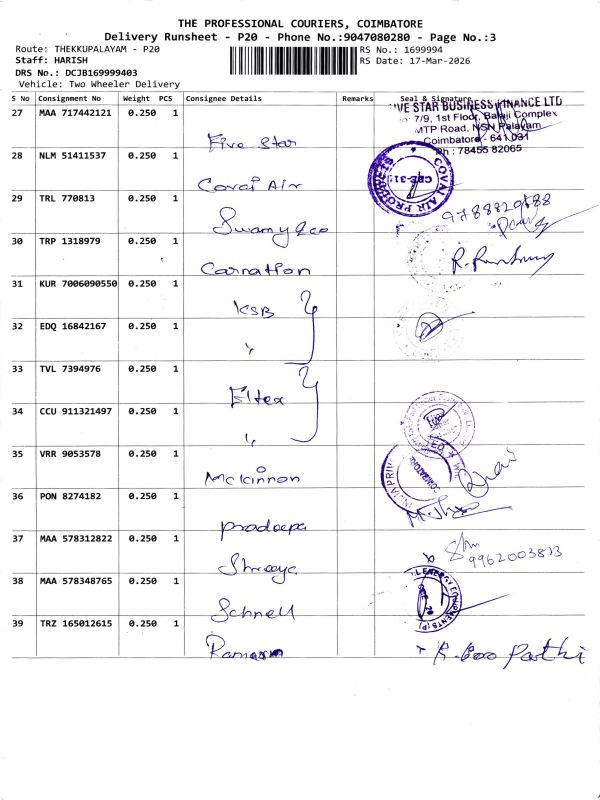 THE PROFESSIONAL COURIERS, COIMBATORE
Delivery Runsheet - P20 - Phone No.:9047080280 - Page No.:3
Route: THEKKUPALAYAM - P20
RS No.: 1699994
Staff: HARISH
RS Date: 17-Mar-2026
DRS No.: DCJB169999403
Vehicle: Two Wheeler Delivery
S No Consignment No Weight PCS Consignee Details Remarks Seal & Signature
27 MAA 717442121 0.250 1
Five Star
IVE STAR BUSINESS FINANCE LTD
7/9, 1st Floor, Balaji Complex
MTP Road, NSN Palayam
Coimbatore - 641 031
Ph : 78455 82065
28 NLM 51411537 0.250 1
Covai Air
COVAI AIR PRODUCTS
CBE-31
29 TRL 770813 0.250 1
Swamy & co
9788820588
30 TRP 1318979 0.250 1
Carnation
31 KUR 7006090550 0.250 1
KSB
32 EDQ 16842167 0.250 1
"
33 TVL 7394976 0.250 1
Eltex
34 CCU 911321497 0.250 1
"
35 VRR 9053578 0.250 1
Mckinnon
COIMBATORE
36 PON 8274182 0.250 1
Pradeepa
37 MAA 578312822 0.250 1
Shreeye
9962003813
38 MAA 578348765 0.250 1
Schnell
39 TRZ 165012615 0.250 1